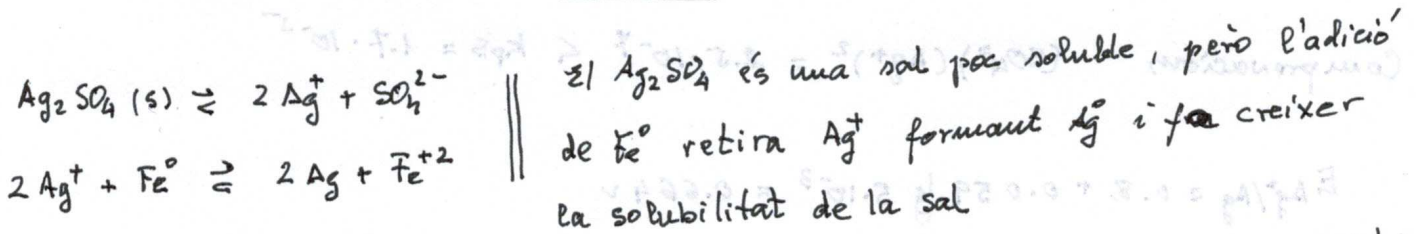 Ag₂SO₄ (s) ⇄ 2 Ag⁺ + SO₄²⁻
2 Ag⁺ + Fe⁰ ⇄ 2 Ag + Fe⁺²
El Ag₂SO₄ és una sal poc soluble, però l'adició
de Fe⁰ retira Ag⁺ formant Ag⁰ i fa creixer
la solubilitat de la sal